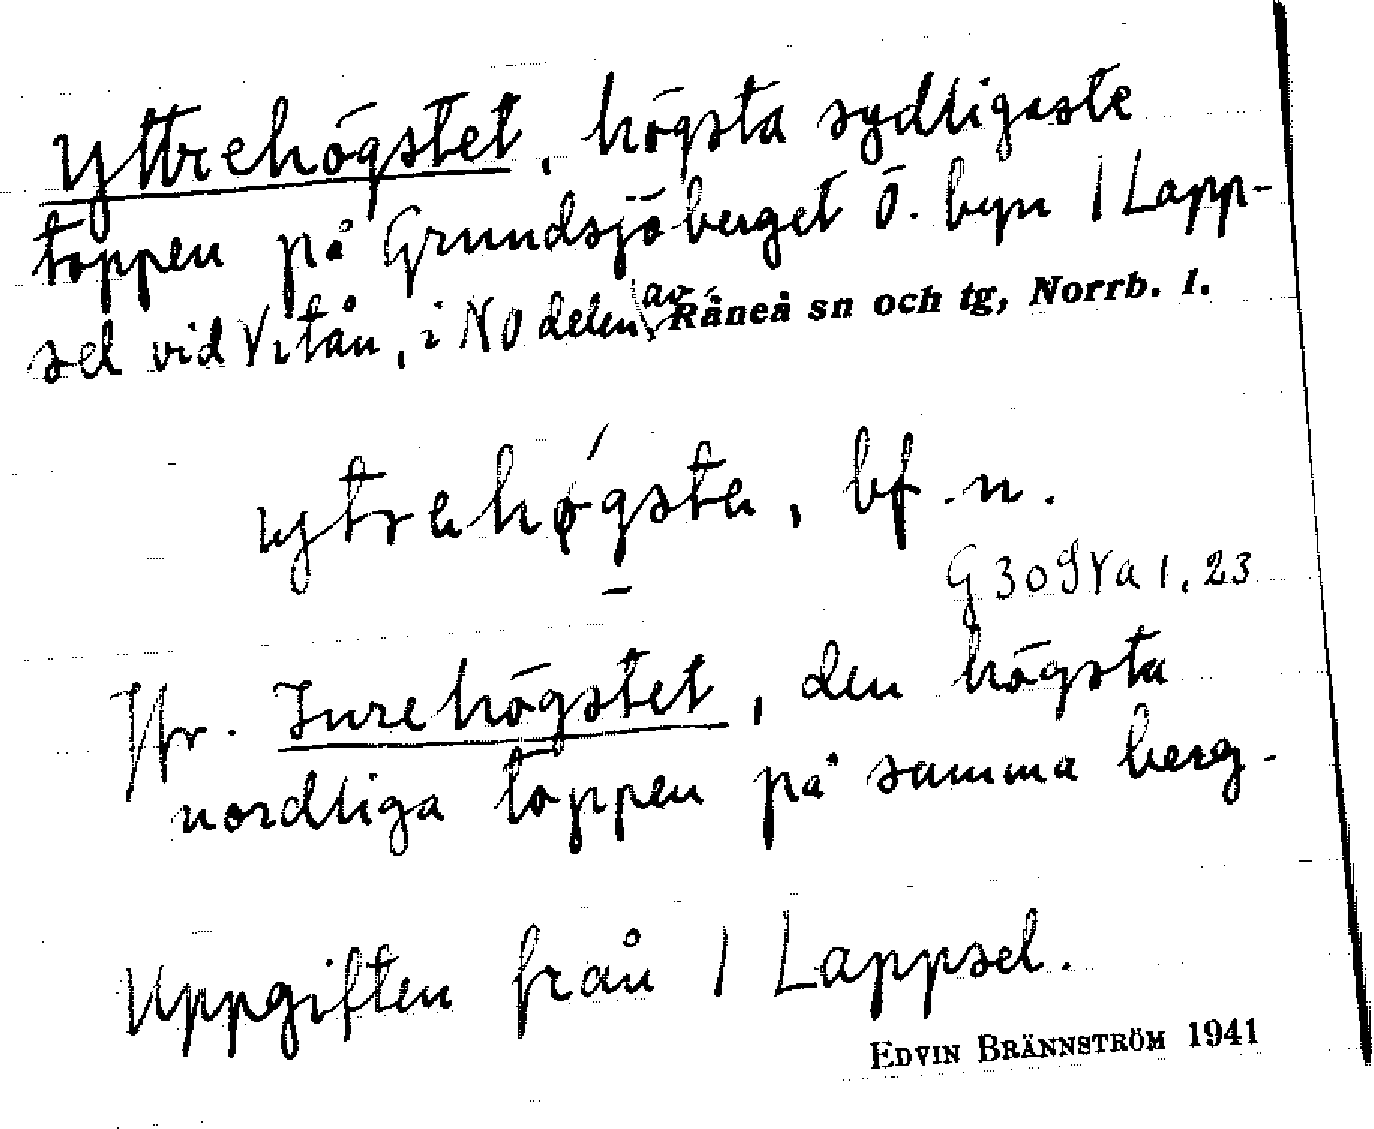 Yttrehögstet, högsta sydligaste
toppen på Grundsjöberget Ö. byn 1 Lapp-
sel vid Vitån, i NO delen av Råneå sn och tg, Norrb. l.
ytrehøgste, bf. n.
G 30 9 Va 1, 23
Jfr. Inrehögstet, den högsta
nordliga toppen på samma berg.
Uppgiften från 1 Lappsel.
EDVIN BRÄNNSTRÖM 1941